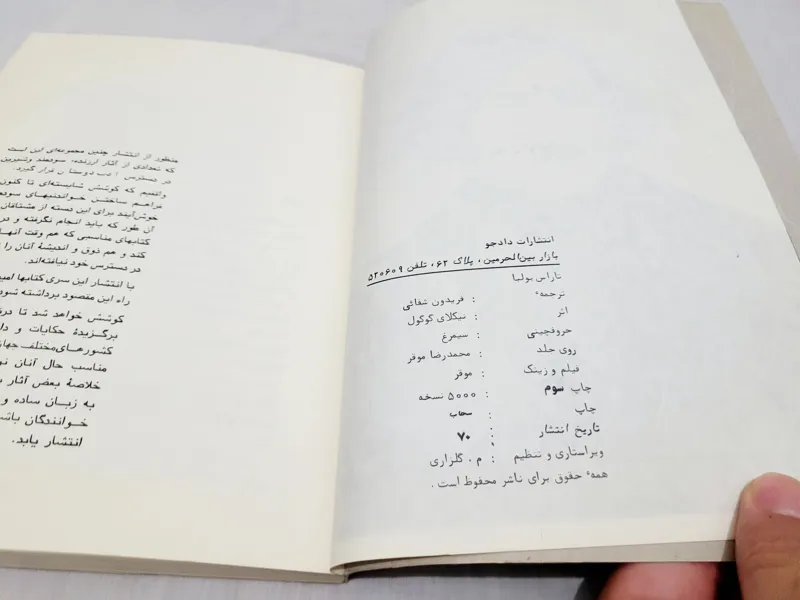 انتشارات دادجو
بازار بین‌الحرمین، پلاک ۶۲، تلفن ۵۲۰۶۰۹
تاراس بولبا
ترجمهٔ : فریدون شفائی
اثر : نیکلای گوگول
حروفچینی : سیمرغ
روی جلد : محمدرضا موقر
فیلم و زینک : موقر
چاپ سوم : ۵۰۰۰ نسخه
چاپ : سحاب
تاریخ انتشار : ۷۰
ویراستاری و تنظیم : م. گلزاری
همهٔ حقوق برای ناشر محفوظ است.
منظور از انتشار چنین مجموعه‌ای این است
که تعدادی از آثار ارزنده، سودمند وشیرین
در دسترس ادب دوستان قرار گیرد.
واقفیم که کوشش شایسته‌ای تا کنون
فراهم ساختن خواندنیهای سودم
خوش‌آیند برای این دسته از مشتاقان
آن طور که باید انجام نگرفته و در
کتابهای مناسبی که هم وقت آنها
کند و هم ذوق و اندیشهٔ آنان را
در دسترس خود نیافته‌اند.
با انتشار این سری کتابها امی
راه این مقصود برداشته شود
کوشش خواهد شد تا در
برگزیدهٔ حکایات و دا
کشورهای مختلف جهان
مناسب حال آنان نو
خلاصهٔ بعض آثار
به زبان ساده و
خوانندگان باش
انتشار یابد.